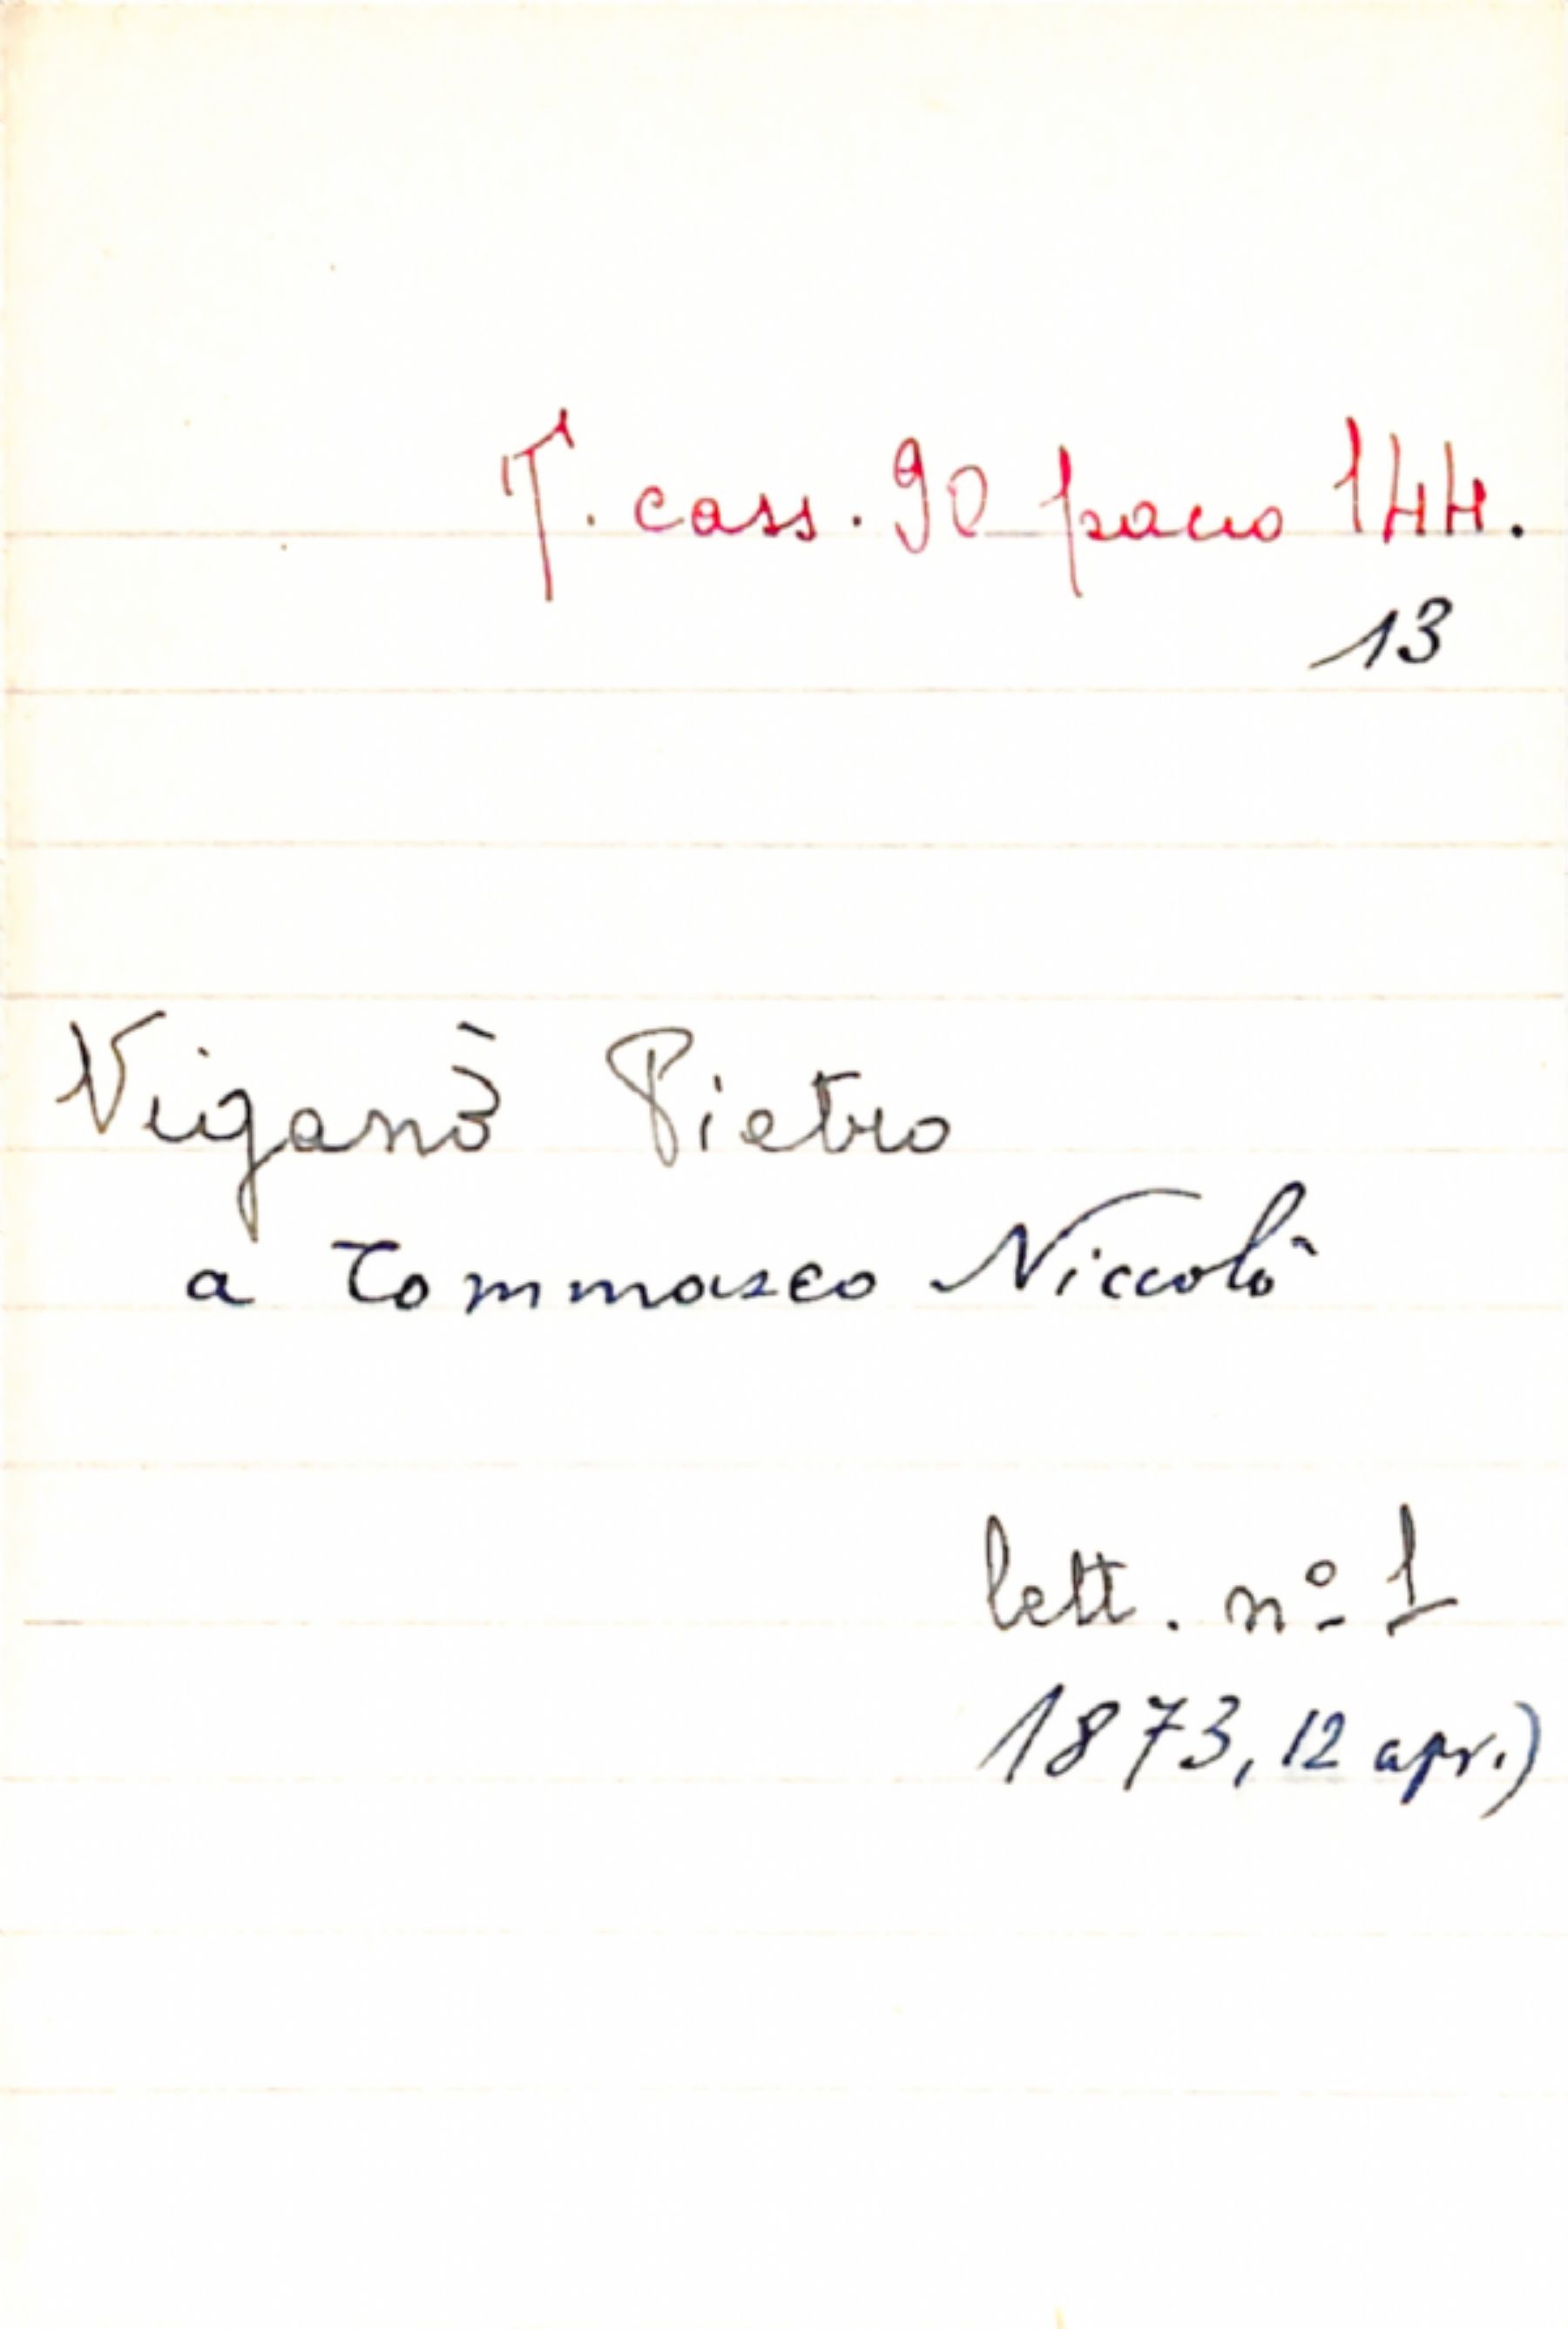 T. cass. 90 pacco 144.
13
Viganò Pietro
a Tommaseo Niccolò
lett. nº 1
1873, 12 apr.)